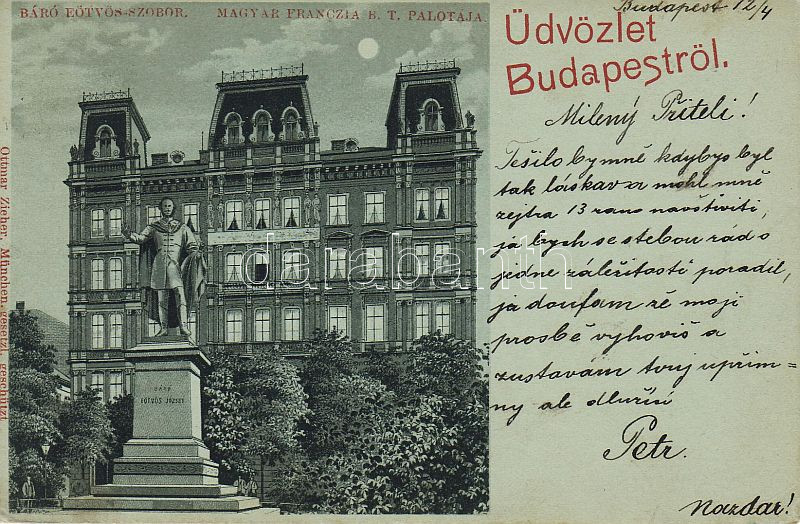 BÁRÓ EÖTVÖS-SZOBOR. MAGYAR FRANCZIA B. T. PALOTAJA.
Budapest 12/4
Üdvözlet
Budapestről.
Milený Příteli!
Těšilo by mně kdybys byl
tak láskav a mohl mně
zejtra 13 rano navštiviti,
já bych se stebou rád o
jedne záležitosti poradil,
já doufam zě moji
prosbě vyhovíš a
zustavám tvuj upřim=
ny ale dlužící
Petr.
Nazdar!
Ottmar Zieher, München, gesetzl. geschützt
BÁRÓ
EÖTVÖS JÓZSEF
darabanth